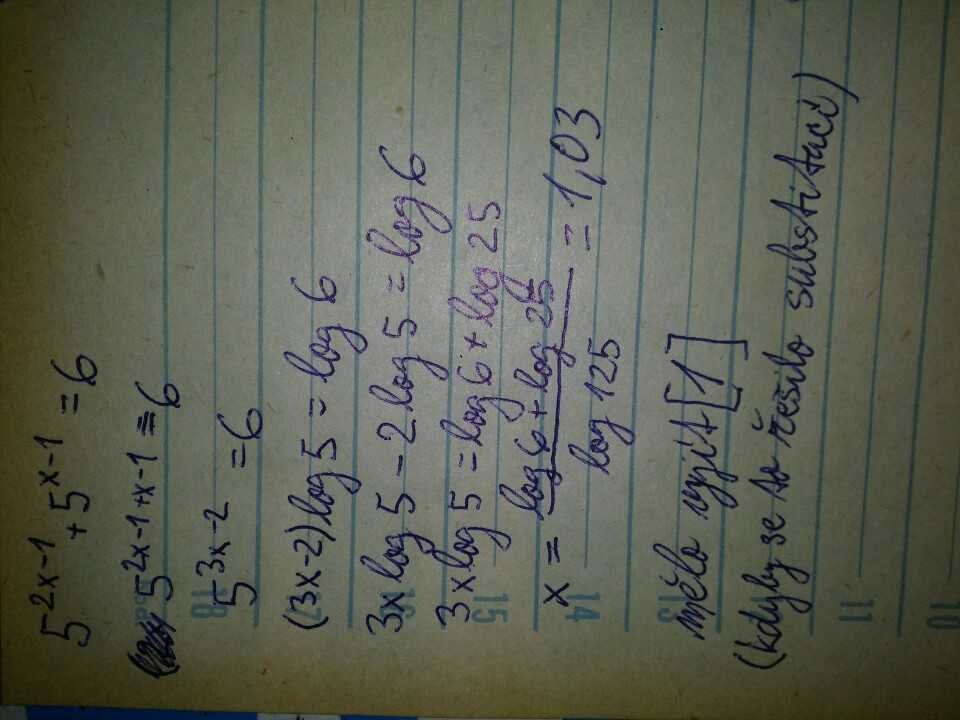 5^{2x-1} + 5^{x-1} = 6
5^{2x-1+x-1} = 6
5^{3x-2} = 6
(3x-2) log 5 = log 6
3x log 5 - 2 log 5 = log 6
3x log 5 = log 6 + log 25
x = \frac{log 6 + log 25}{log 125} = 1,03
mělo vyjít [1]
(kdyby se to řešilo substitací)
18
16
15
14
13
11
10